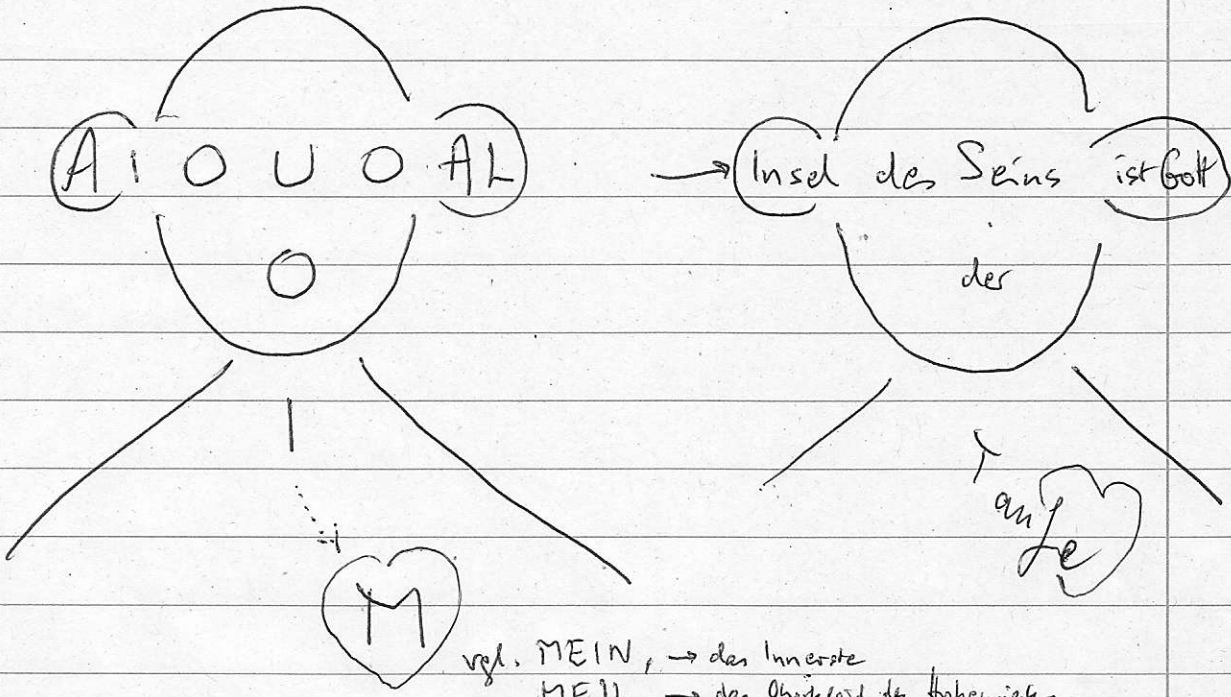 AI O U O AL → Insel des Seins ist Gott
O der
I
an
M
vgl. MEIN, → das Innerste